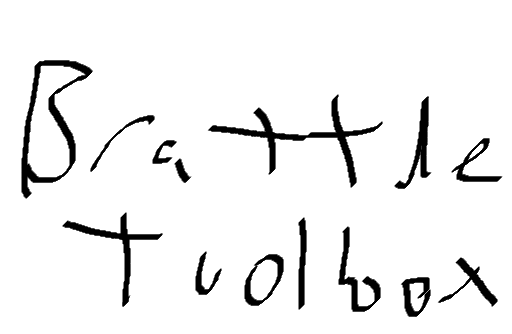 Brattle
Tuolbox